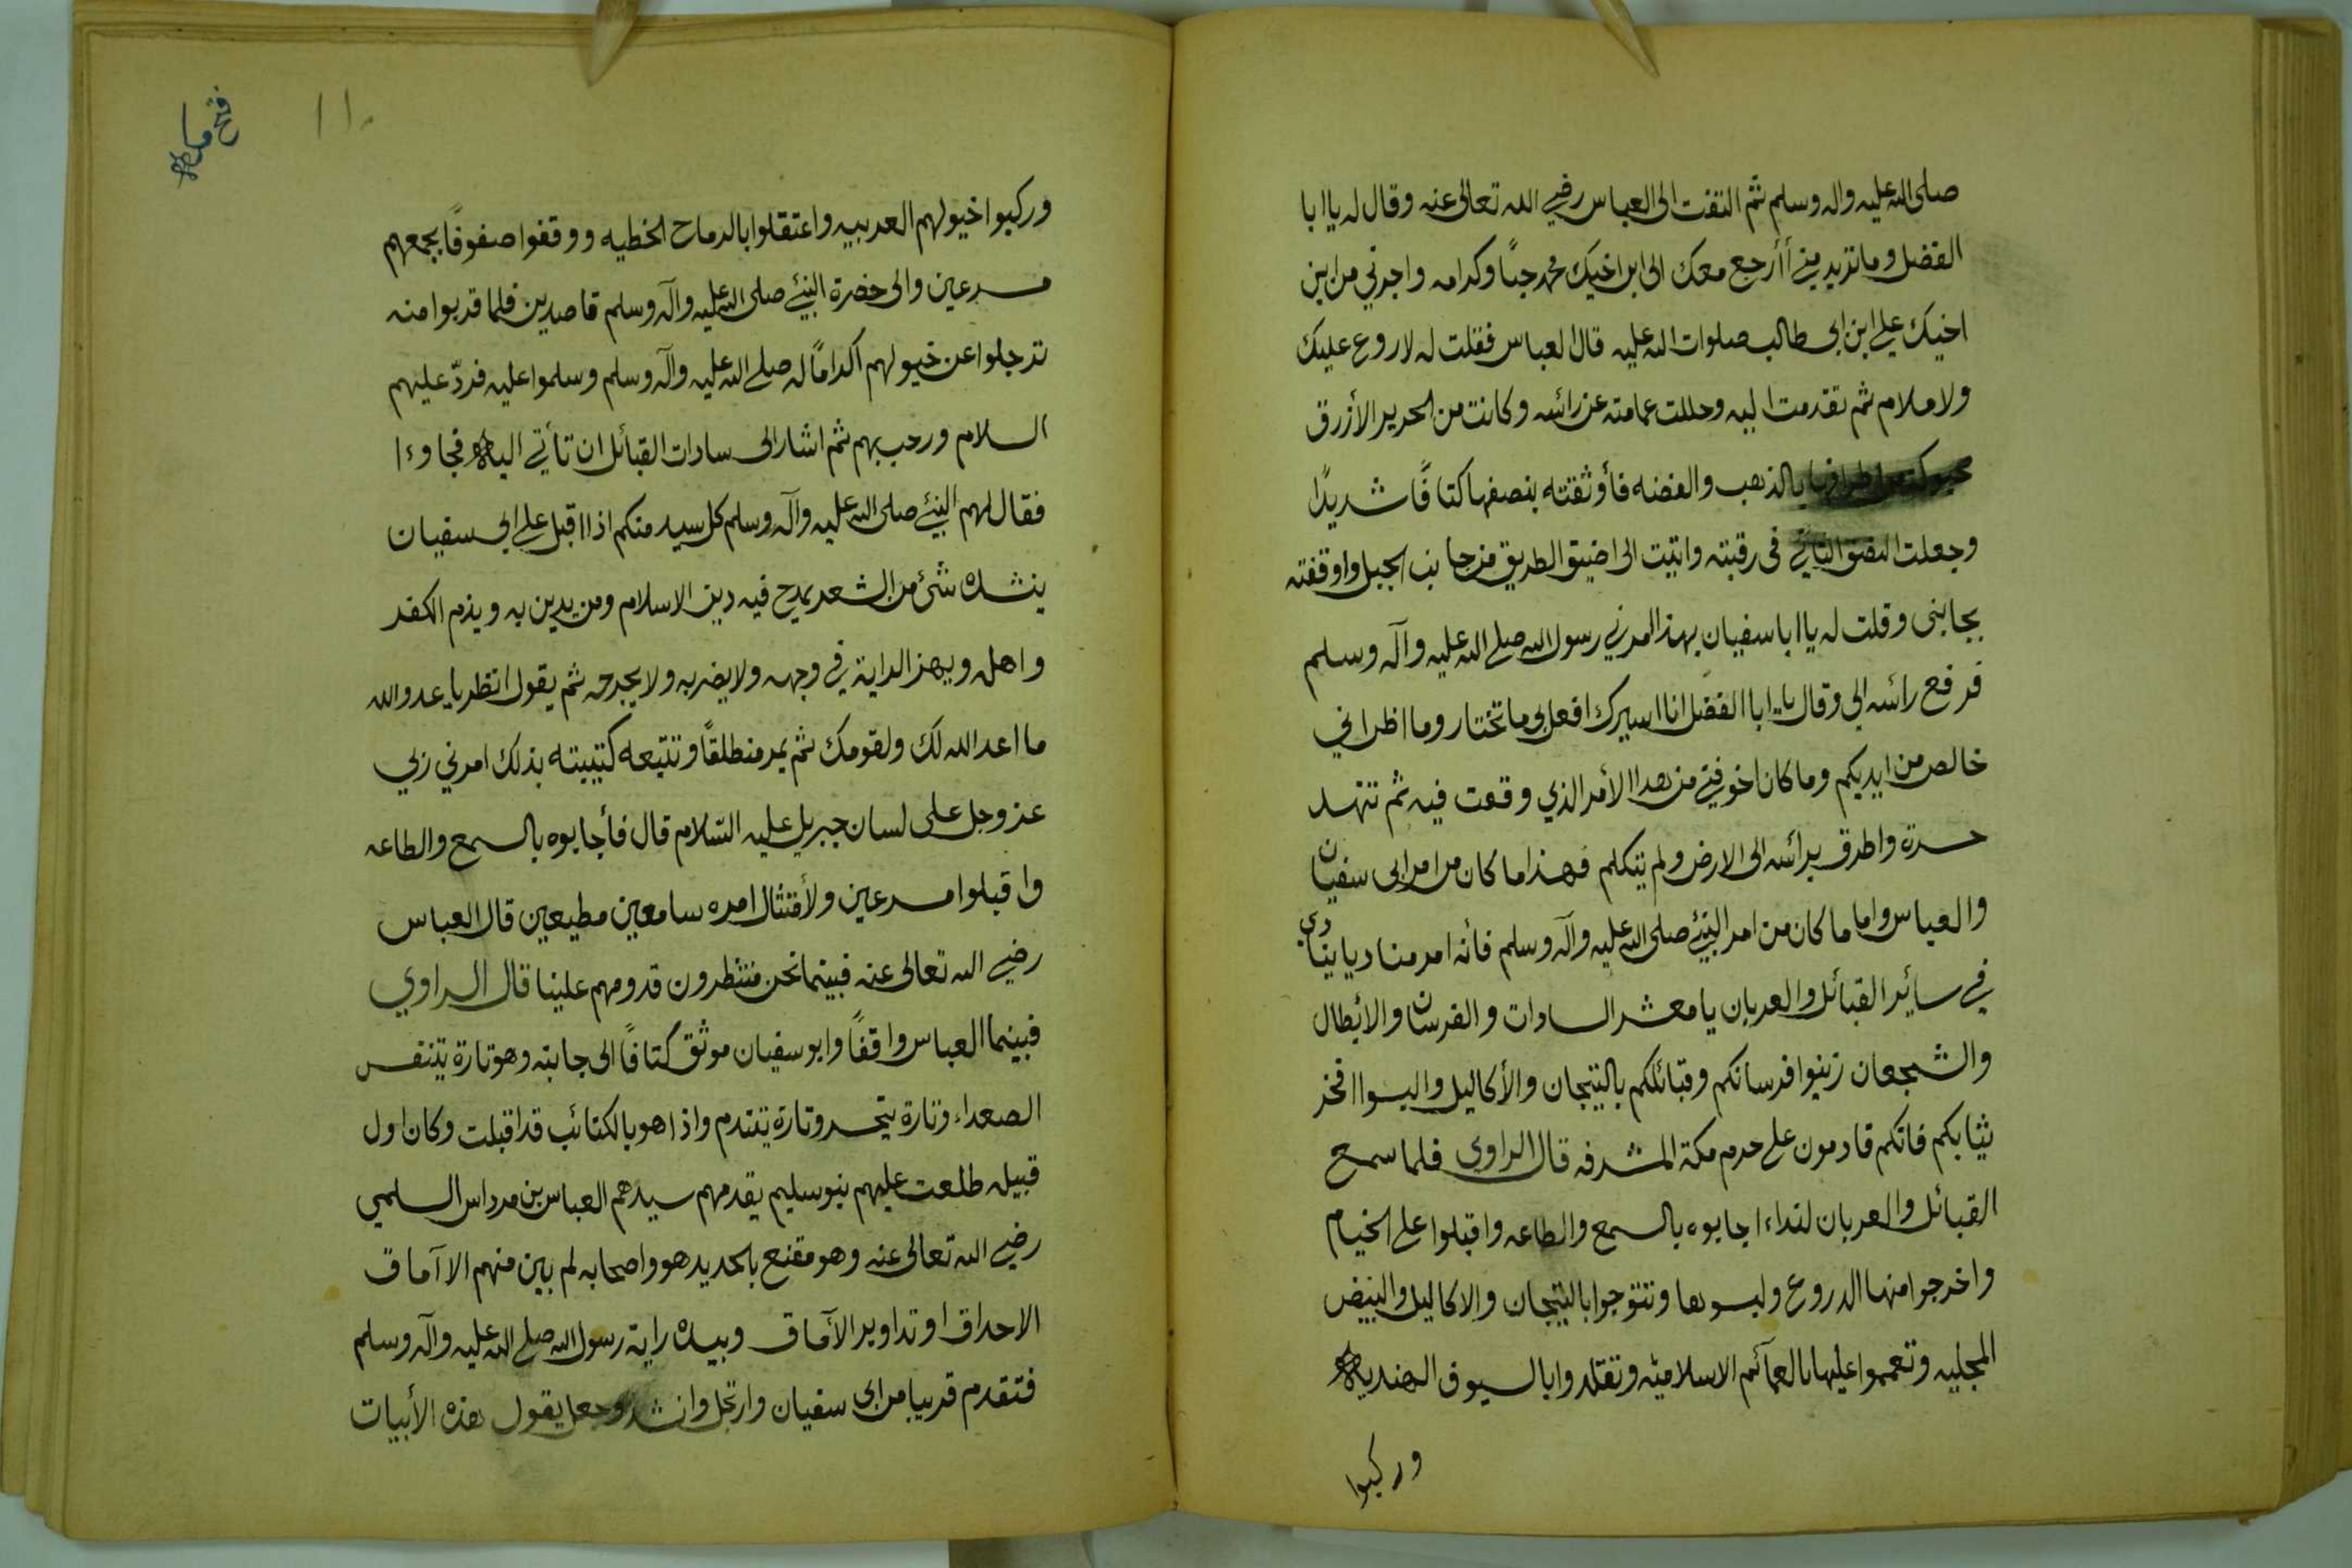 صلى الله عليه واله وسلم ثم التفت الى العباس رضي الله تعالى عنه وقال له يا ابا
الفضل وما تريد مني أأرجع معك الى ابن اخيك محمد حبًا وكرامه واجرني من ابن
اخيك علي ابن ابي طالب صلوات الله عليه قال العباس فقلت له لا روع عليك
ولا ملام ثم تقدمت اليه وحللت عمامته عن رائسه وكانت من الحرير الأزرق
محبوكة اطرافها بالذهب والفضه فأوثقته بنصفها كتافًا شديدًا
وجعلت النصف الثاني في رقبته واتيت الى اضيق الطريق من جانب الجبل واوقفته
بجانبي وقلت له يا ابا سفيان بهذا امرني رسول الله صلى الله عليه وآله وسلم
فرفع رائسه الي وقال يا ابا الفضل انا اسيرك افعل بي ما تختار وما اظن اني
خالص من ايديكم وما كان اخوفني من هذا الأمر الذي وقعت فيه ثم تنهد
حسرة واطرق برائسه الى الارض ولم يتكلم فهذا ما كان من امر ابي سفيان
والعباس واما ما كان من امر النبي صلى الله عليه وآله وسلم فأنه امر مناديا ينادي
في سائر القبائل والعربان يا معشر السادات والفرسان والأبطال
والشجعان زينوا فرسانكم وقبائلكم بالتيجان والأكاليل والبسوا افخر
ثيابكم فانكم قادمون على حرم مكة المشرفه قال الراوي فلما سمع
القبائل والعربان لنداء اجابوه بالسمع والطاعه واقبلوا على الخيام
واخرجوا منها الدروع ولبسوها وتتوجوا بالتيجان والاكاليل والبيض
المجليه وتعمموا عليها بالعمآئم الاسلاميّه وتقلدوا بالسيوف الهنديه
وركبوا
١١٠
فتح مكه
وركبوا خيولهم العربيه واعتقلوا بالرماح الخطيه ووقفوا صفوفًا بجمعهم
مسرعين والى حضرة النبي صلى الله عليه وآله وسلم قاصدين فلما قربوا منه
ترجلوا عن خيولهم اكرامًا له صلى الله عليه وآله وسلم وسلموا عليه فردّ عليهم
السلام ورحب بهم ثم اشار الى سادات القبائل ان تأتي اليه فجاوءا
فقال لهم النبي صلى الله عليه وآله وسلم كل سيد منكم اذا اقبل على ابي سفيان
ينشده شئ من الشعر يمدح فيه دين الاسلام ومن يدين به ويذم الكفر
واهله ويهز الراية في وجهه ولا يضربه ولا يجرحه ثم يقول انظر يا عدو الله
ما اعد الله لك ولقومك ثم يمر منطلقًا وتتبعه كتيبته بذلك امرني ربي
عز وجل على لسان جبريل عليه السّلام قال فأجابوه بالسمع والطاعه
واقبلوا مسرعين ولأمتثال امره سامعين مطيعين قال العباس
رضي الله تعالى عنه فبينما نحن منتظرون قدومهم علينا قال الراوي
فبينما العباس واقفًا وابو سفيان موثق كتافًا الى جانبه وهو تارة يتنفس
الصعداء وتارة يتحسر وتارة يتندم واذا هو بالكتائب قد اقبلت وكان اول
قبيله طلعت عليهم بنو سليم يقدمهم سيدهم العباس بن مرداس السلمي
رضي الله تعالى عنه وهو مقنع بالحديد هو واصحابه لم يبين منهم الا آماق
الاحداق او تداوير الآماق وبيده راية رسول الله صلى الله عليه وآله وسلم
فتقدم قريبا من ابي سفيان وارتجل وانشد وجعل يقول هذه الأبيات